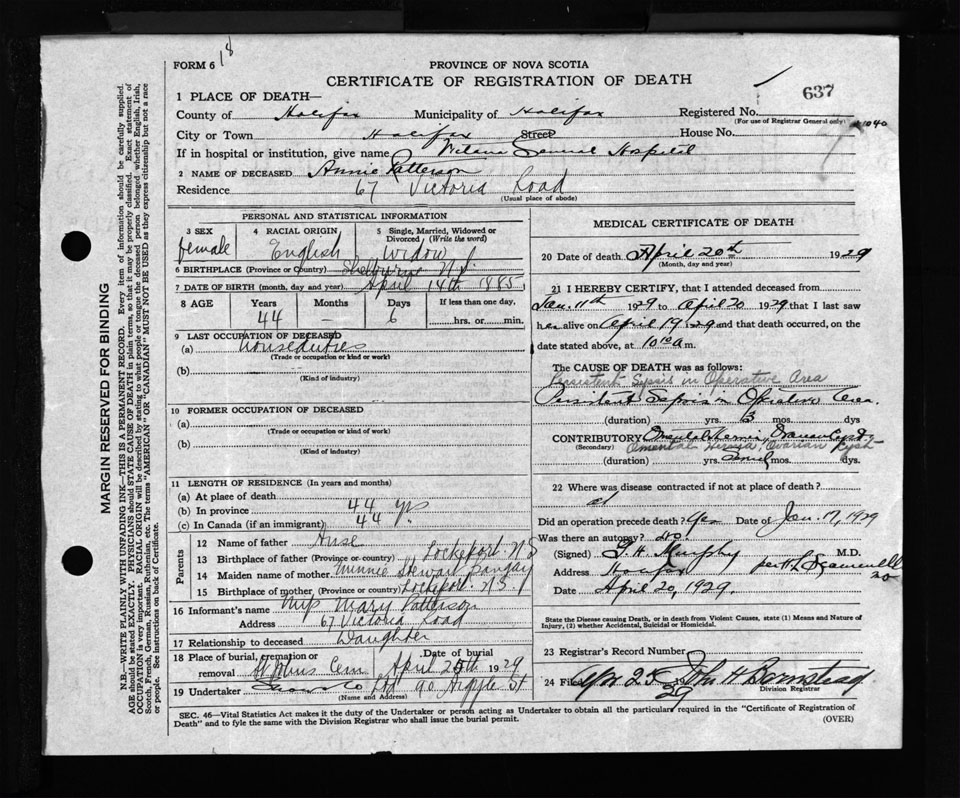 FORM 6 18
PROVINCE OF NOVA SCOTIA
CERTIFICATE OF REGISTRATION OF DEATH
637
1 PLACE OF DEATH—
County of Halifax Municipality of Halifax Registered No.
(For use of Registrar General only)
City or Town Halifax Street House No.
If in hospital or institution, give name General Hospital
2 NAME OF DECEASED Annie Patterson
Residence 67 Victoria Road
(Usual place of abode)
PERSONAL AND STATISTICAL INFORMATION
3 SEX 4 RACIAL ORIGIN 5 Single, Married, Widowed or Divorced (Write the word)
female English Widow
6 BIRTHPLACE (Province or Country) Shelburne N.S.
7 DATE OF BIRTH (month, day and year) April 14th 1885
8 AGE Years Months Days If less than one day,
44 — 6 hrs. or min.
9 LAST OCCUPATION OF DECEASED
(a) Houseduties
(Trade or occupation or kind of work)
(b)
(Kind of industry)
10 FORMER OCCUPATION OF DECEASED
(a)
(Trade or occupation or kind of work)
(b)
(Kind of industry)
11 LENGTH OF RESIDENCE (In years and months)
(a) At place of death
(b) In province 44 yrs
(c) In Canada (if an immigrant) 44
Parents
12 Name of father
13 Birthplace of father (Province or country) Lockeport N.S
14 Maiden name of mother Minnie Stewart
15 Birthplace of mother (Province or country) Lockeport N.S.
16 Informant's name Mary Patterson
Address 67 Victoria Road
17 Relationship to deceased Daughter
18 Place of burial, cremation or removal Cem Date of burial April 25th 1929
19 Undertaker Snow Co Ltd 90 Argyle St
(Name and Address)
MEDICAL CERTIFICATE OF DEATH
20 Date of death April 20th 1929
(Month, day and year)
21 I HEREBY CERTIFY, that I attended deceased from
Jan. 11th 1929 to April 20 1929 that I last saw
her alive on April 19 1929 and that death occurred, on
date stated above, at 10 10 a m.
The CAUSE OF DEATH was as follows:
Persistent Sepsis in Operative Area
Persistent Sepsis in Operative Area.
(duration) yrs. 3 mos. dys
CONTRIBUTORY Omental Hernia, Ovarian Cyst
(Secondary) Omental Hernia, Ovarian Cyst
(duration) yrs. mos. dys.
22 Where was disease contracted if not at place of death?
Did an operation precede death? Yes Date of Jan. 17, 1929
Was there an autopsy? no.
(Signed) G. H. Murphy M.D.
Address Halifax
Date April 20, 1929.
State the Disease causing Death, or in death from Violent Causes, state (1) Means and Nature of Injury, (2) whether Accidental, Suicidal or Homicidal.
23 Registrar's Record Number
24 Filed Apr 25 1929 John H Barnstead
Division Registrar
SEC. 46—Vital Statistics Act makes it the duty of the Undertaker or person acting as Undertaker to obtain all the particulars required in the "Certificate of Registration of
Death" and to fyle the same with the Division Registrar who shall issue the burial permit. (OVER)
MARGIN RESERVED FOR BINDING
N.B.—WRITE PLAINLY WITH UNFADING INK—THIS IS A PERMANENT RECORD. Every item of information should be carefully supplied.
AGE should be stated EXACTLY. PHYSICIANS should STATE CAUSE OF DEATH in plain terms, so that it may be properly classified. Exact statement of
OCCUPATION is very important. RACIAL ORIGIN will be described by stating to what people or tongue the deceased person belonged whether English, Irish,
Scotch, French, German, Russian, Ruthenian, etc. The terms "AMERICAN" OR "CANADIAN" MUST NOT BE USED as they express citizenship but not a race
or people. See instructions on back of Certificate.